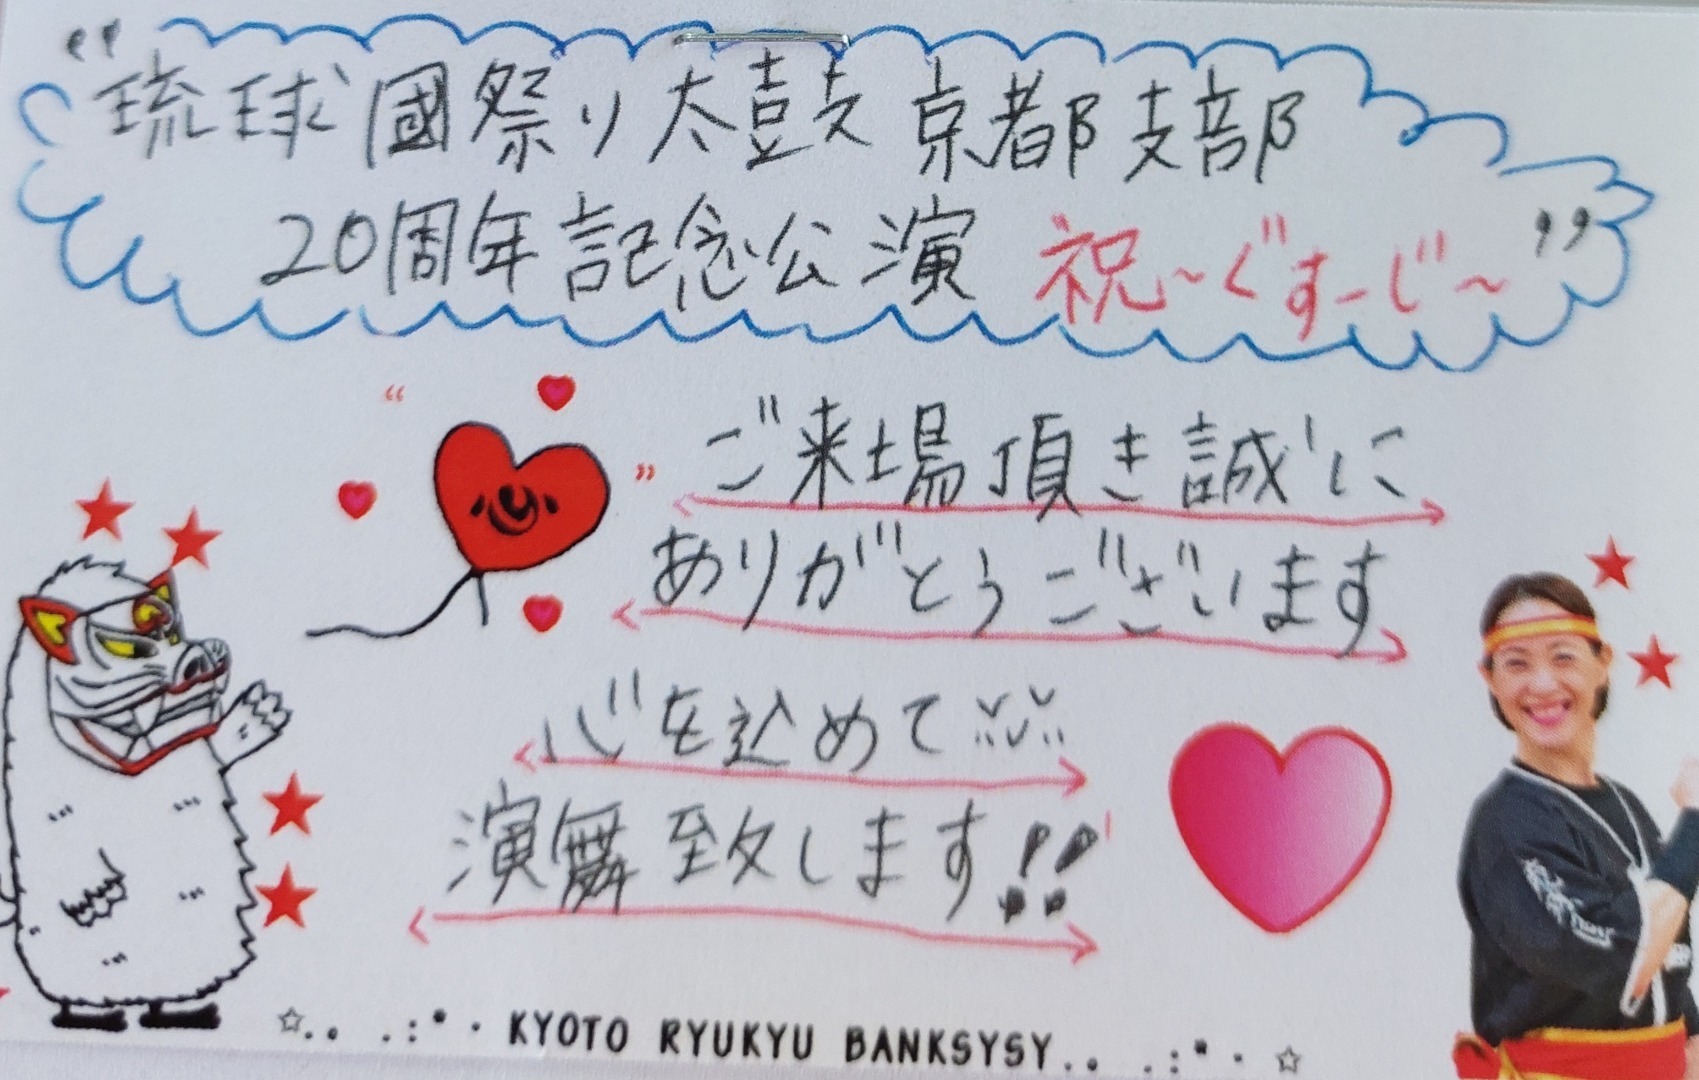 “琉球國祭り太鼓 京都支部
20周年記念公演 祝～ぐすーじ～”
“ ”
ご来場頂き誠に
ありがとうございます
心を込めて
演舞致します!!
☆.. .:*・KYOTO RYUKYU BANKSYSY.. .:*・☆